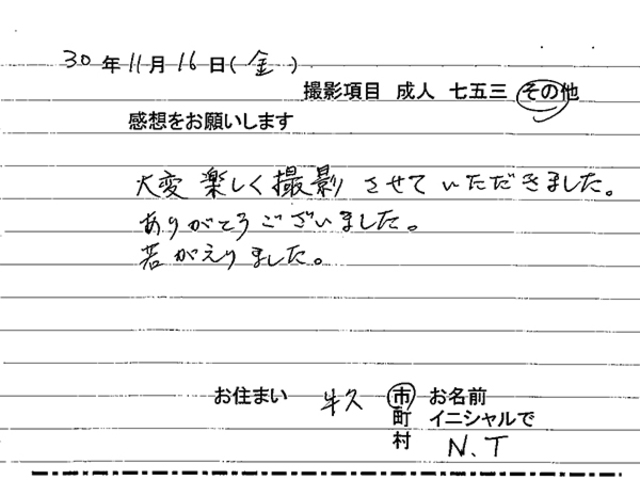 30年11月16日(金)
撮影項目 成人 七五三 その他
感想をお願いします
大変楽しく撮影させていただきました。
ありがとうございました。
若がえりました。
お住まい 牛久 市 お名前
町 イニシャルで
村 N.T